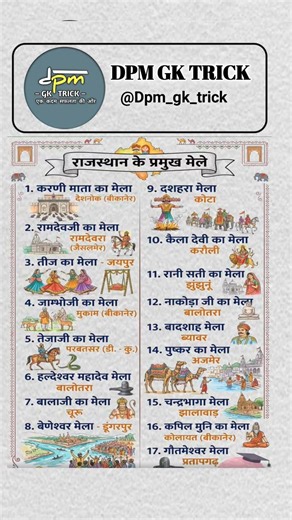 dpm
- GK TRICK -
एक कदम सफलता की ओर
DPM GK TRICK
@Dpm_gk_trick
राजस्थान के प्रमुख मेले
1. करणी माता का मेला
देशनोक (बीकानेर)
2. रामदेवजी का मेला
रामदेवरा
(जैसलमेर)
3. तीज का मेला - जयपुर
4. जाम्भोजी का मेला
मुकाम (बीकानेर)
5. तेजाजी का मेला
परबतसर (डी. - कु.)
6. हल्देश्वर महादेव मेला
बालोतरा
7. बालाजी का मेला
चूरू
8. बेणेश्वर मेला - डूंगरपुर
9. दशहरा मेला
कोटा
10. कैला देवी का मेला
करौली
11. रानी सती का मेला
झुंझुनूं
12. नाकोड़ा जी का मेला
बालोतरा
13. बादशाह मेला
ब्यावर
14. पुष्कर का मेला
अजमेर
15. चन्द्रभागा मेला
झालावाड़
16. कपिल मुनि का मेला
कोलायत (बीकानेर)
17. गौतमेश्वर मेला
प्रतापगढ़